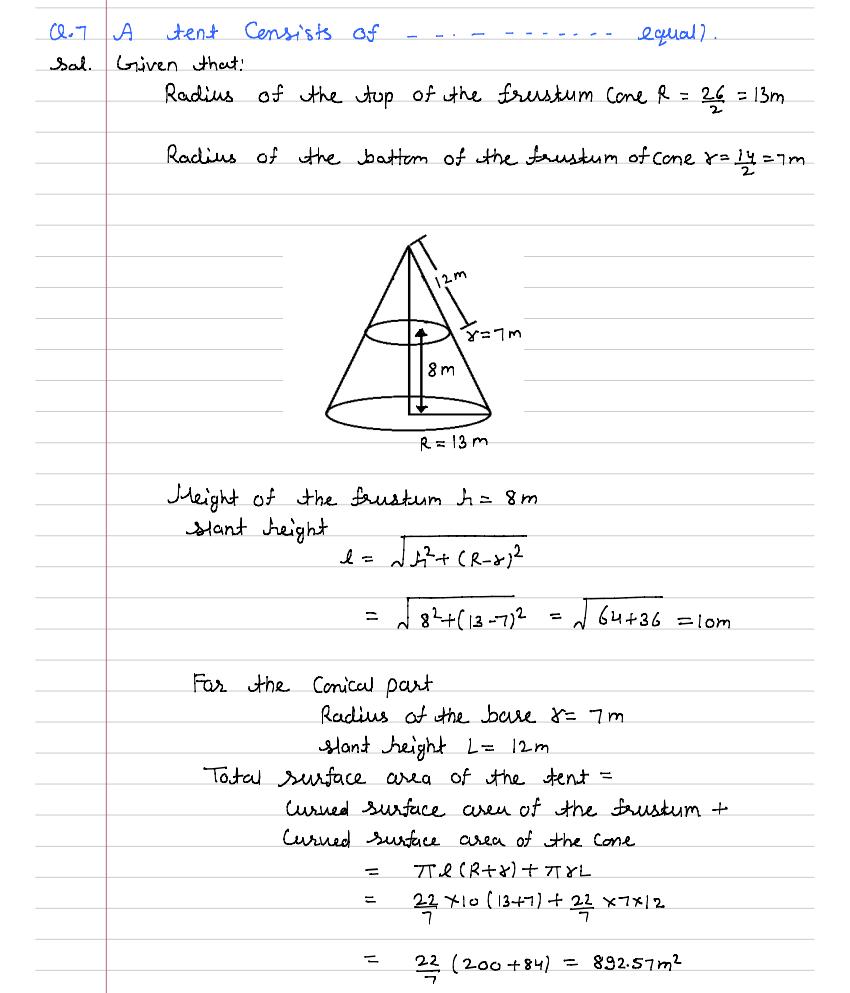 Q.7 A tent Consists of - - . - - - - - - - - - equal).
Sol. Given that:
Radius of the top of the frustum Cone R = 26/2 = 13m
Radius of the bottom of the frustum of cone r = 14/2 = 7m
12m
r = 7m
8m
R = 13m
Height of the frustum h = 8m
slant height
l = √(h² + (R-r)²)
= √(8² + (13-7)²) = √(64+36) = 10m
For the Conical part
Radius of the base r = 7m
slant height L = 12m
Total surface area of the tent =
Curved surface area of the frustum +
Curved surface area of the Cone
= πl(R+r) + πrL
= 22/7 × 10 (13+7) + 22/7 × 7 × 12
= 22/7 (200 + 84) = 892.57m²